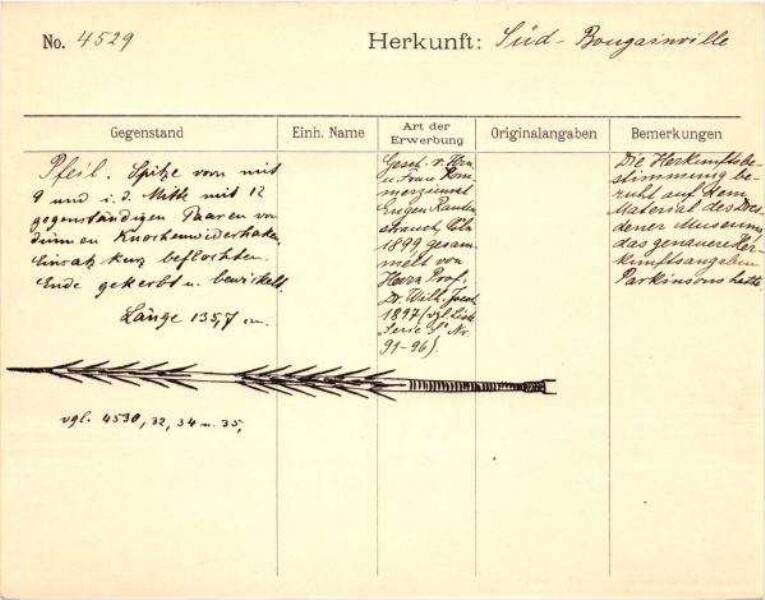 No. 4529
Herkunft: Süd-Bougainville
Gegenstand
Einh. Name
Art der Erwerbung
Originalangaben
Bemerkungen
Pfeil. Spitze vorn mit
9 und i. d. Mitte mit 12
gegenständigen Paaren von
dünnen Knochenwiderhaken,
Einsatz kurz beflochten.
Ende gekerbt u. bewickelt.
Länge 135,7 cm.
Gesch. v. Hrn
u. Frau Kom
merzienrat
Eugen Rauten
strauch, Cöln
1899, gesam
melt von
Herrn Prof.
Dr. Wilh. Joest
1897 (vgl. Liste
Serie S Nr.
91-96).
Die Herkunftsbe-
stimmung be-
ruht auf dem
Material des Dres-
dener Museums,
das genauere Her-
kunftsangaben
Parkinsons hatte.
vgl. 4530, 32, 34 u. 35,